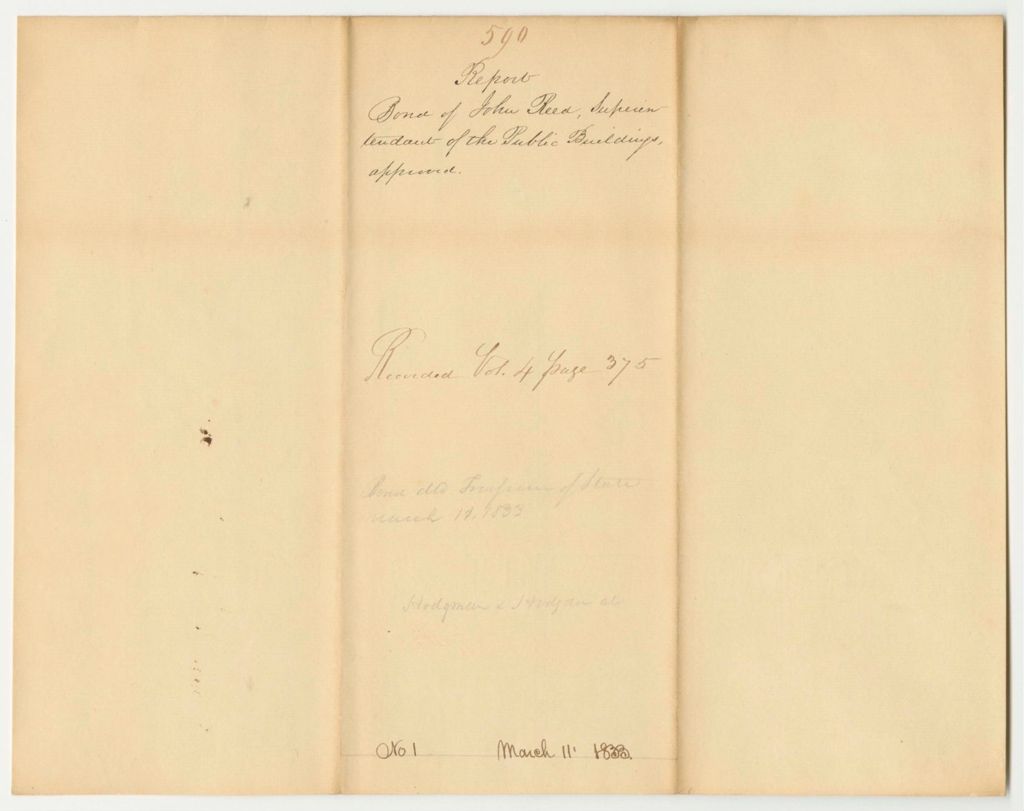 590
Report
Bond of John Reed, Superin
tendant of the Public Buildings,
approved.
Recorded Vol. 4 page 375
Bond dld Treasurer of State
March 12, 1833
Hodgman &
No 1 March 11 1833.